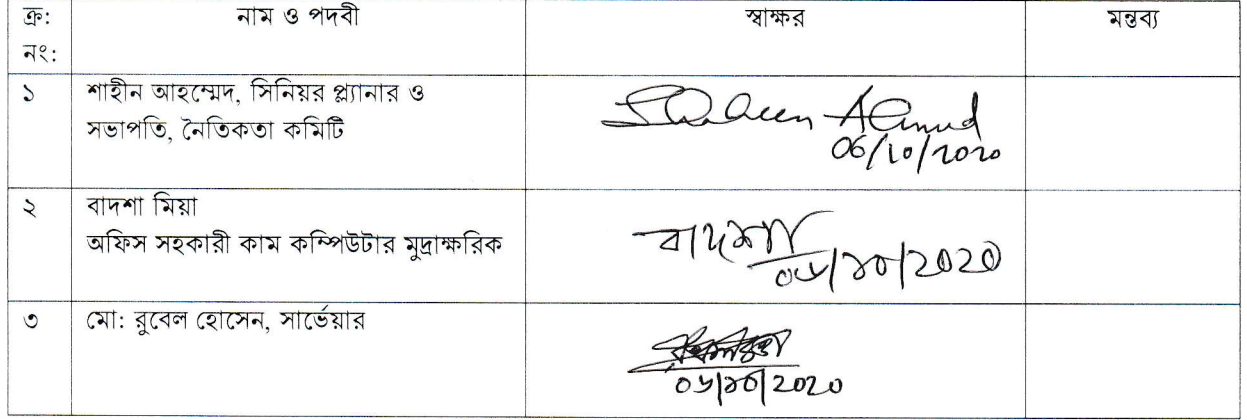 ক্র: নাম ও পদবী স্বাক্ষর মন্তব্য
নং:
১ শাহীন আহম্মেদ, সিনিয়র প্ল্যানার ও
সভাপতি, নৈতিকতা কমিটি
Shaheen Ahmed
06/10/2020
২ বাদশা মিয়া
অফিস সহকারী কাম কম্পিউটার মুদ্রাক্ষরিক
বাদশা
০৬/১০/2020
৩ মো: রুবেল হোসেন, সার্ভেয়ার
০৬/১০/2020